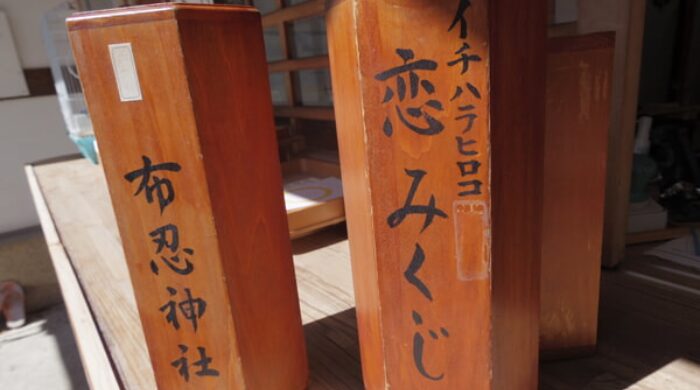 布忍神社
イチハテヒロコ
恋みくじ